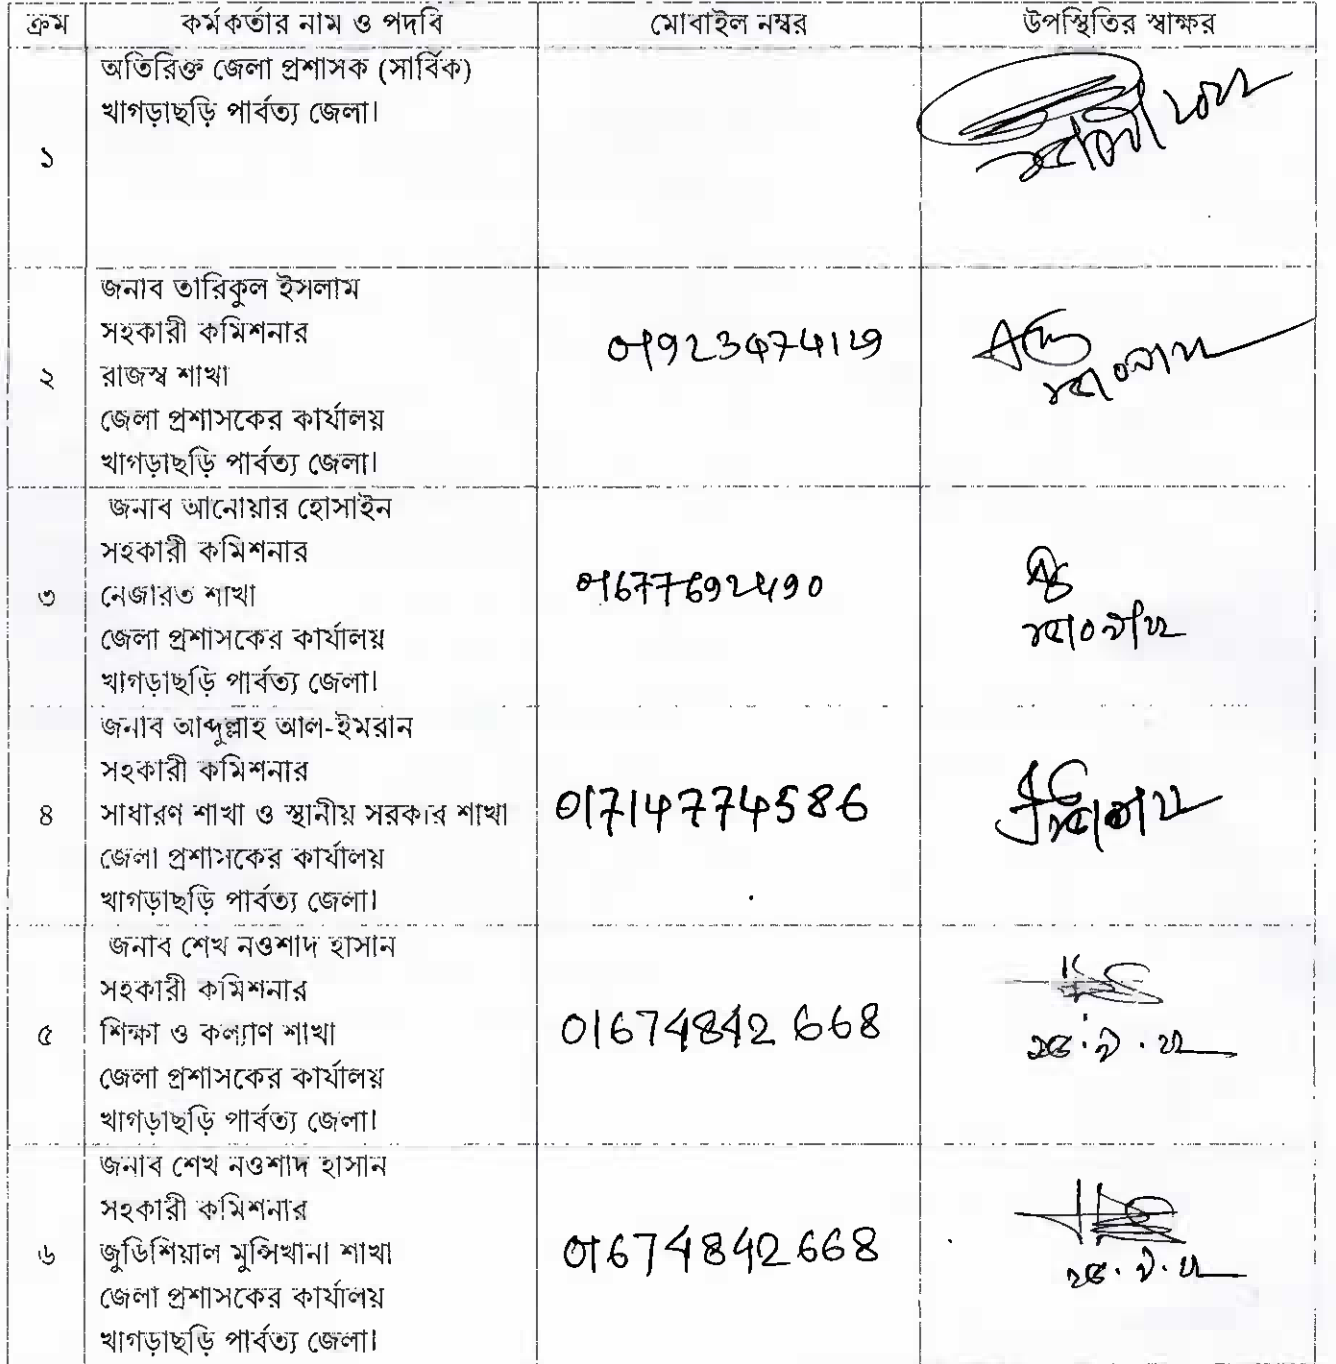 ক্রম কর্মকর্তার নাম ও পদবি মোবাইল নম্বর উপস্থিতির স্বাক্ষর
১ অতিরিক্ত জেলা প্রশাসক (সার্বিক)
খাগড়াছড়ি পার্বত্য জেলা।
২ জনাব তারিকুল ইসলাম
সহকারী কমিশনার
রাজস্ব শাখা
জেলা প্রশাসকের কার্যালয়
খাগড়াছড়ি পার্বত্য জেলা।
৩ জনাব আনোয়ার হোসাইন
সহকারী কমিশনার
নেজারত শাখা
জেলা প্রশাসকের কার্যালয়
খাগড়াছড়ি পার্বত্য জেলা।
01677692490
৪ জনাব আব্দুল্লাহ আল-ইমরান
সহকারী কমিশনার
সাধারণ শাখা ও স্থানীয় সরকার শাখা
জেলা প্রশাসকের কার্যালয়
খাগড়াছড়ি পার্বত্য জেলা।
01714774586
৫ জনাব শেখ নওশাদ হাসান
সহকারী কমিশনার
শিক্ষা ও কল্যাণ শাখা
জেলা প্রশাসকের কার্যালয়
খাগড়াছড়ি পার্বত্য জেলা।
01674842668
২৫.৯.২২
৬ জনাব শেখ নওশাদ হাসান
সহকারী কমিশনার
জুডিশিয়াল মুন্সিখানা শাখা
জেলা প্রশাসকের কার্যালয়
খাগড়াছড়ি পার্বত্য জেলা।
01674842668
২৫.৯.২২